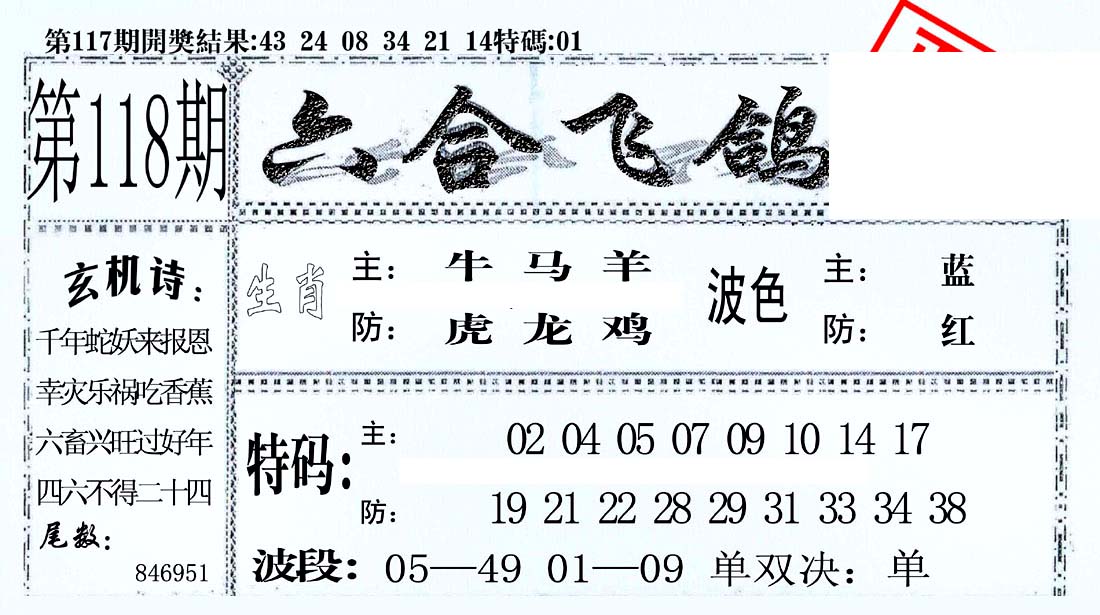 第117期開獎結果:43 24 08 34 21 14特碼:01
第118期
六合飞鸽
玄机诗：
千年蛇妖来报恩
幸灾乐祸吃香蕉
六畜兴旺过好年
四六不得二十四
尾数：
846951
生肖
主： 牛 马 羊
防： 虎 龙 鸡
波色
主： 蓝
防： 红
特码：
主： 02 04 05 07 09 10 14 17
防： 19 21 22 28 29 31 33 34 38
波段：05—49 01—09 单双决：单